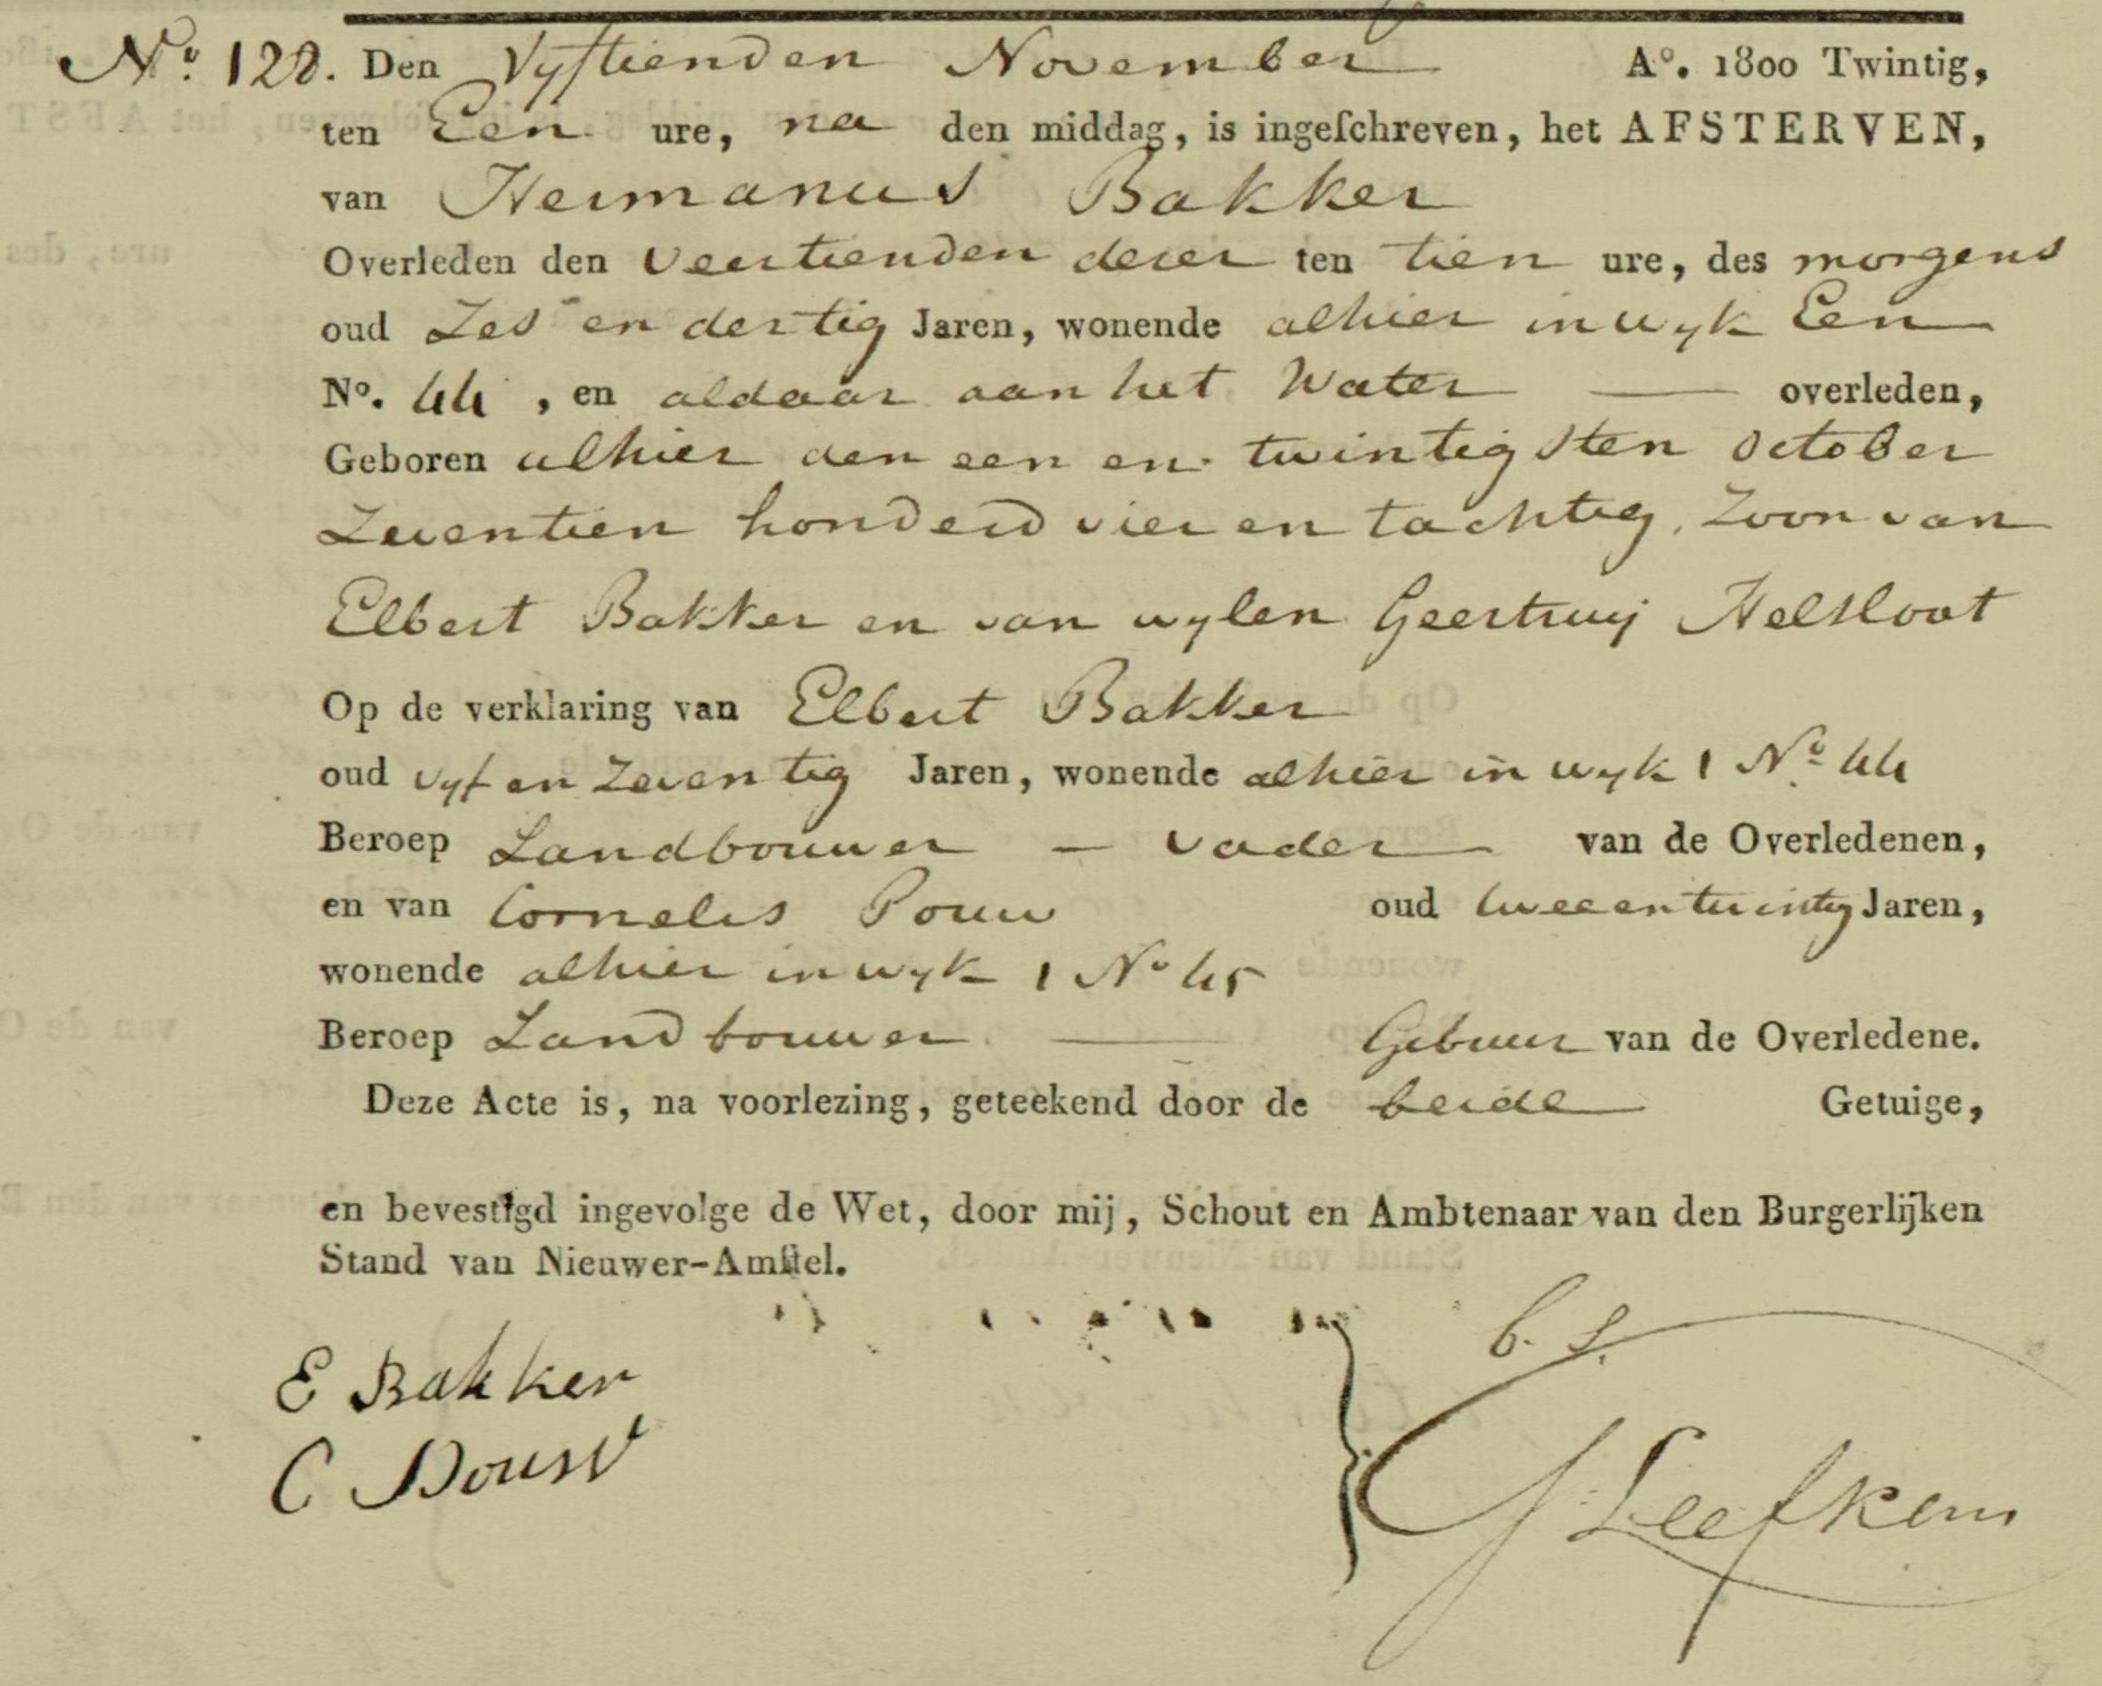 No. 128. Den Vyftienden November Ao. 1800 Twintig,
ten Een ure, na den middag, is ingeſchreven, het AFSTERVEN,
van Hermanus Bakker
Overleden den veertienden dezer ten tien ure, des morgens
oud Zes en dertig Jaren, wonende alhier in wyk Een
No. 44, en aldaar aan het Water — overleden,
Geboren alhier den een en twintigsten October
Zeventien honderd vier en tachtig, Zoon van
Elbert Bakker en van wylen Geertruij Helsloot
Op de verklaring van Elbert Bakker
oud vyf en Zeventig Jaren, wonende alhier in wyk 1 No. 44
Beroep Landbouwer — vader van de Overledenen,
en van Cornelis Pouw oud twee en twintig Jaren,
wonende alhier in wyk 1 No 45
Beroep Landbouwer — Gebuur van de Overledene.
Deze Acte is, na voorlezing, geteekend door de beide Getuige,
en bevestigd ingevolge de Wet, door mij, Schout en Ambtenaar van den Burgerlijken
Stand van Nieuwer-Amſtel.
E Bakker
C Pouw
Leefkens